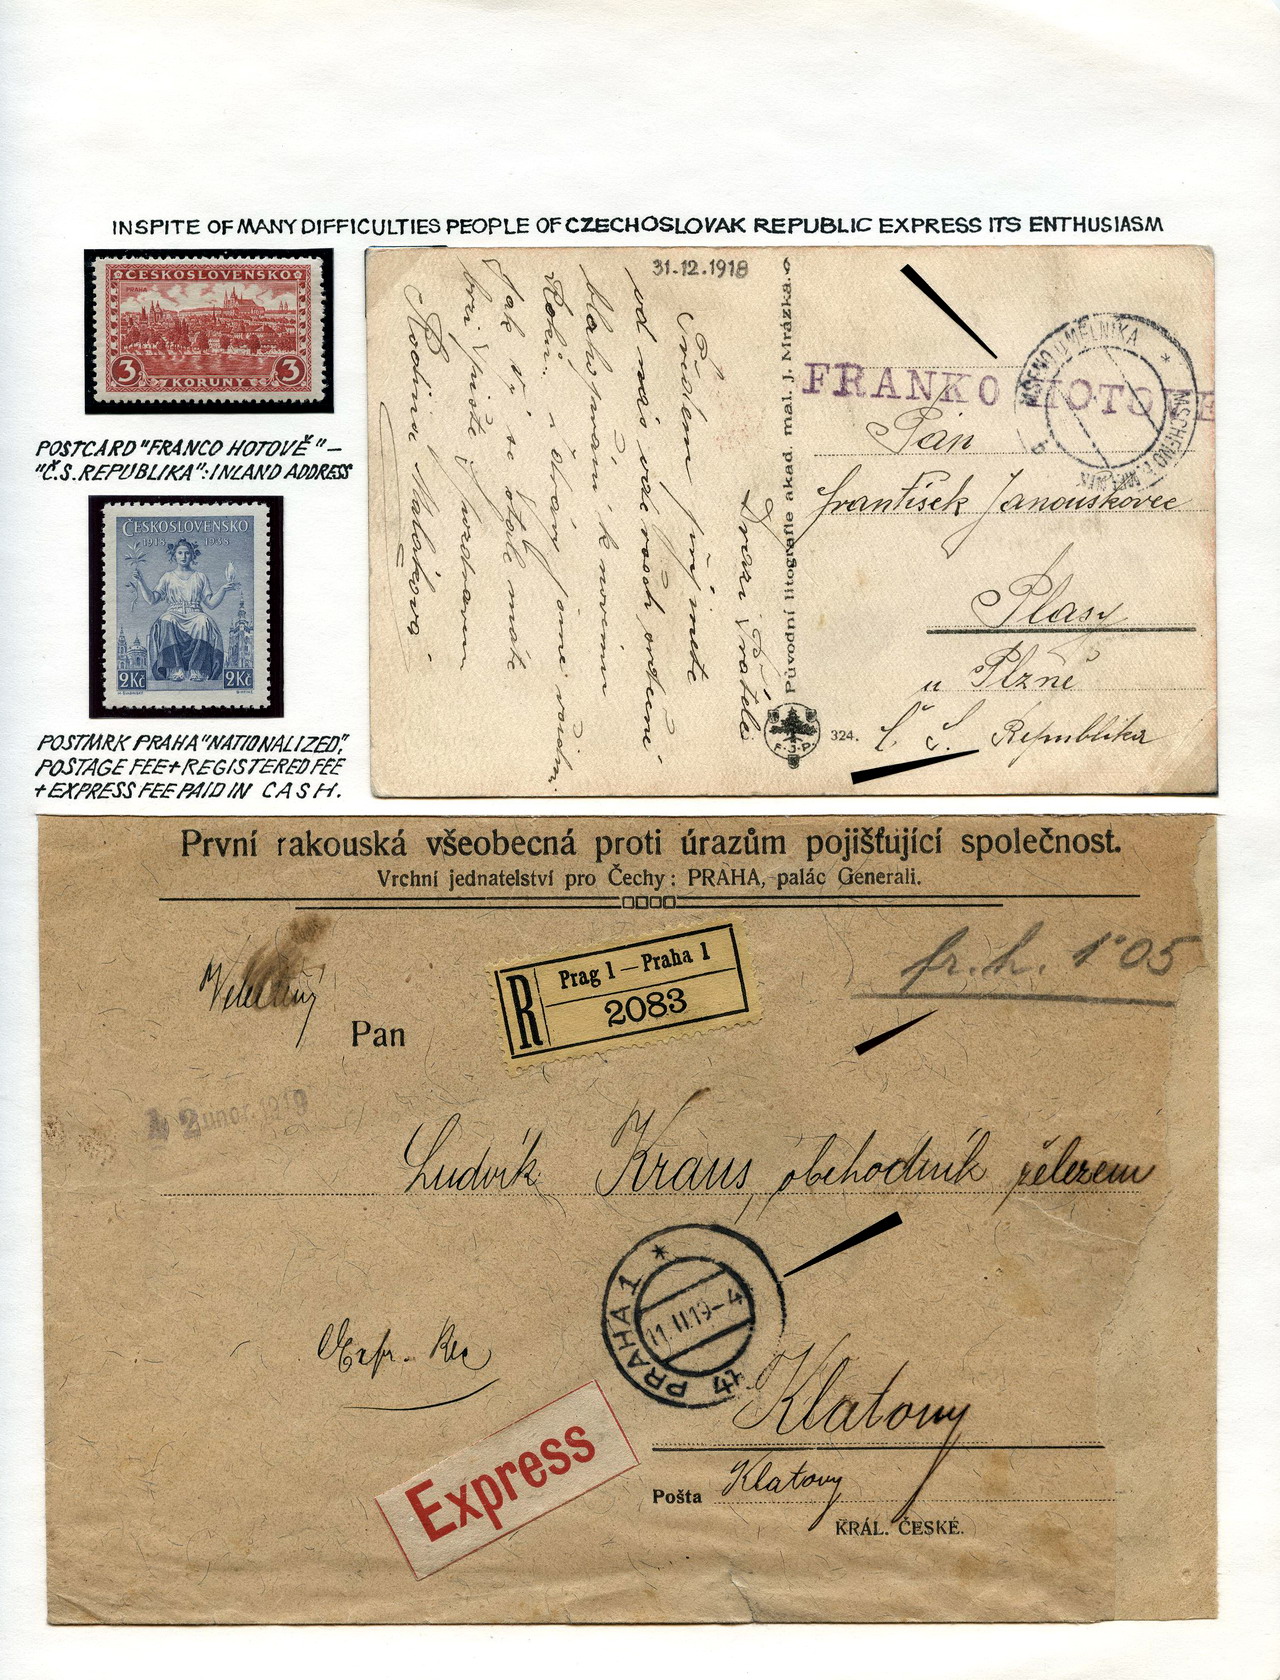 INSPITE OF MANY DIFFICULTIES PEOPLE OF CZECHOSLOVAK REPUBLIC EXPRESS ITS ENTHUSIASM
ČESKOSLOVENSKO
PRAHA
3 KORUNY 3
POSTCARD "FRANCO HOTOVĚ" –
"Č.S. REPUBLIKA": INLAND ADDRESS
ČESKOSLOVENSKO
1918 1938
2Kč 2Kč
POSTMRK PRAHA "NATIONALIZED",
POSTAGE FEE + REGISTERED FEE
+ EXPRESS FEE PAID IN CASH.
31.12.1918
Drazí Přátelé
Srdečně přijmete
od nás
blahopřání k novému
Roku.
Jak Vy se
Rodina
Původní litografie akad. mal. J. Mrázka.
F.J.P.
324.
FRANKO HOTOVE
MŠENO U MĚLNÍKA * MSCHENO B. MELNIK b
Pán
František Janouškovec
Plasy
u Plzně
Č. S. Republika
První rakouská všeobecná proti úrazům pojišťující společnost.
Vrchní jednatelství pro Čechy: PRAHA, palác Generali.
fr. h. 1·05
R Prag 1 — Praha 1
2083
Pan
únor. 1919
Ludvík Kraus, obchodník železem
* PRAHA 1
11.II.19–4
PRAHA 1
Expr. Rec
Klatovy
Express
Pošta Klatovy
KRÁL. ČESKÉ.